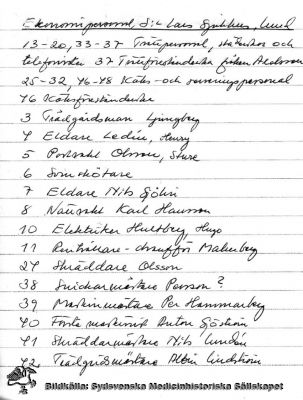 Ekonomipersonal, S:t Lars Sjukhus, Lund
13-20, 33-37 Tvättpersonal, sköterskor och
telefonister 37 Tvättföreståndarska fröken Axelsson
25-32, 46-48 Köks- och serveringspersonal
46 Köksföreståndarska
3 Trädgårdsman Ljungberg
4 Eldare Ledin, Henry
5 Portvakt Olsson, Sture
6 Svinskötare
7 Eldare Nils Sjöhin
8 Nattvakt Karl Hansson
10 Elektriker Hultberg, Hugo
11 Malmberg
24 Skräddare Olsson
38 Snickarmästare Persson ?
39 Maskinmästare Per Hammarberg
40 Förste maskinist Anton Sjöström
41 Skräddarmästare Nils Lundin
42 Trädgårdsmästare Albin Lindström
Bildkälla: Sydsvenska Medicinhistoriska Sällskapet